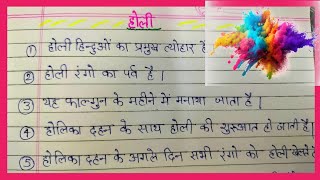 होली
① होली हिन्दुओं का प्रमुख त्योहार है
② होली रंगो का पर्व है।
③ यह फाल्गुन के महीने में मनाया जाता है।
④ होलिका दहन के साथ होली की शुरुआत हो जाती है।
⑤ होलिका दहन के अगले दिन सभी रंगो को होली खेलते